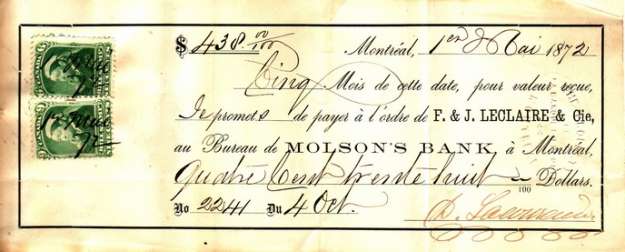 $ 438.00/100 Montréal, 1er Mai 1872
Cinq Mois de cette date, pour valeur reçue,
Je promets de payer à l'ordre de F. & J. LECLAIRE & Cie,
au Bureau de MOLSON'S BANK, à Montréal,
Quatre Cent trente huit /100 Dollars.
No 2241 Du 4 Oct.